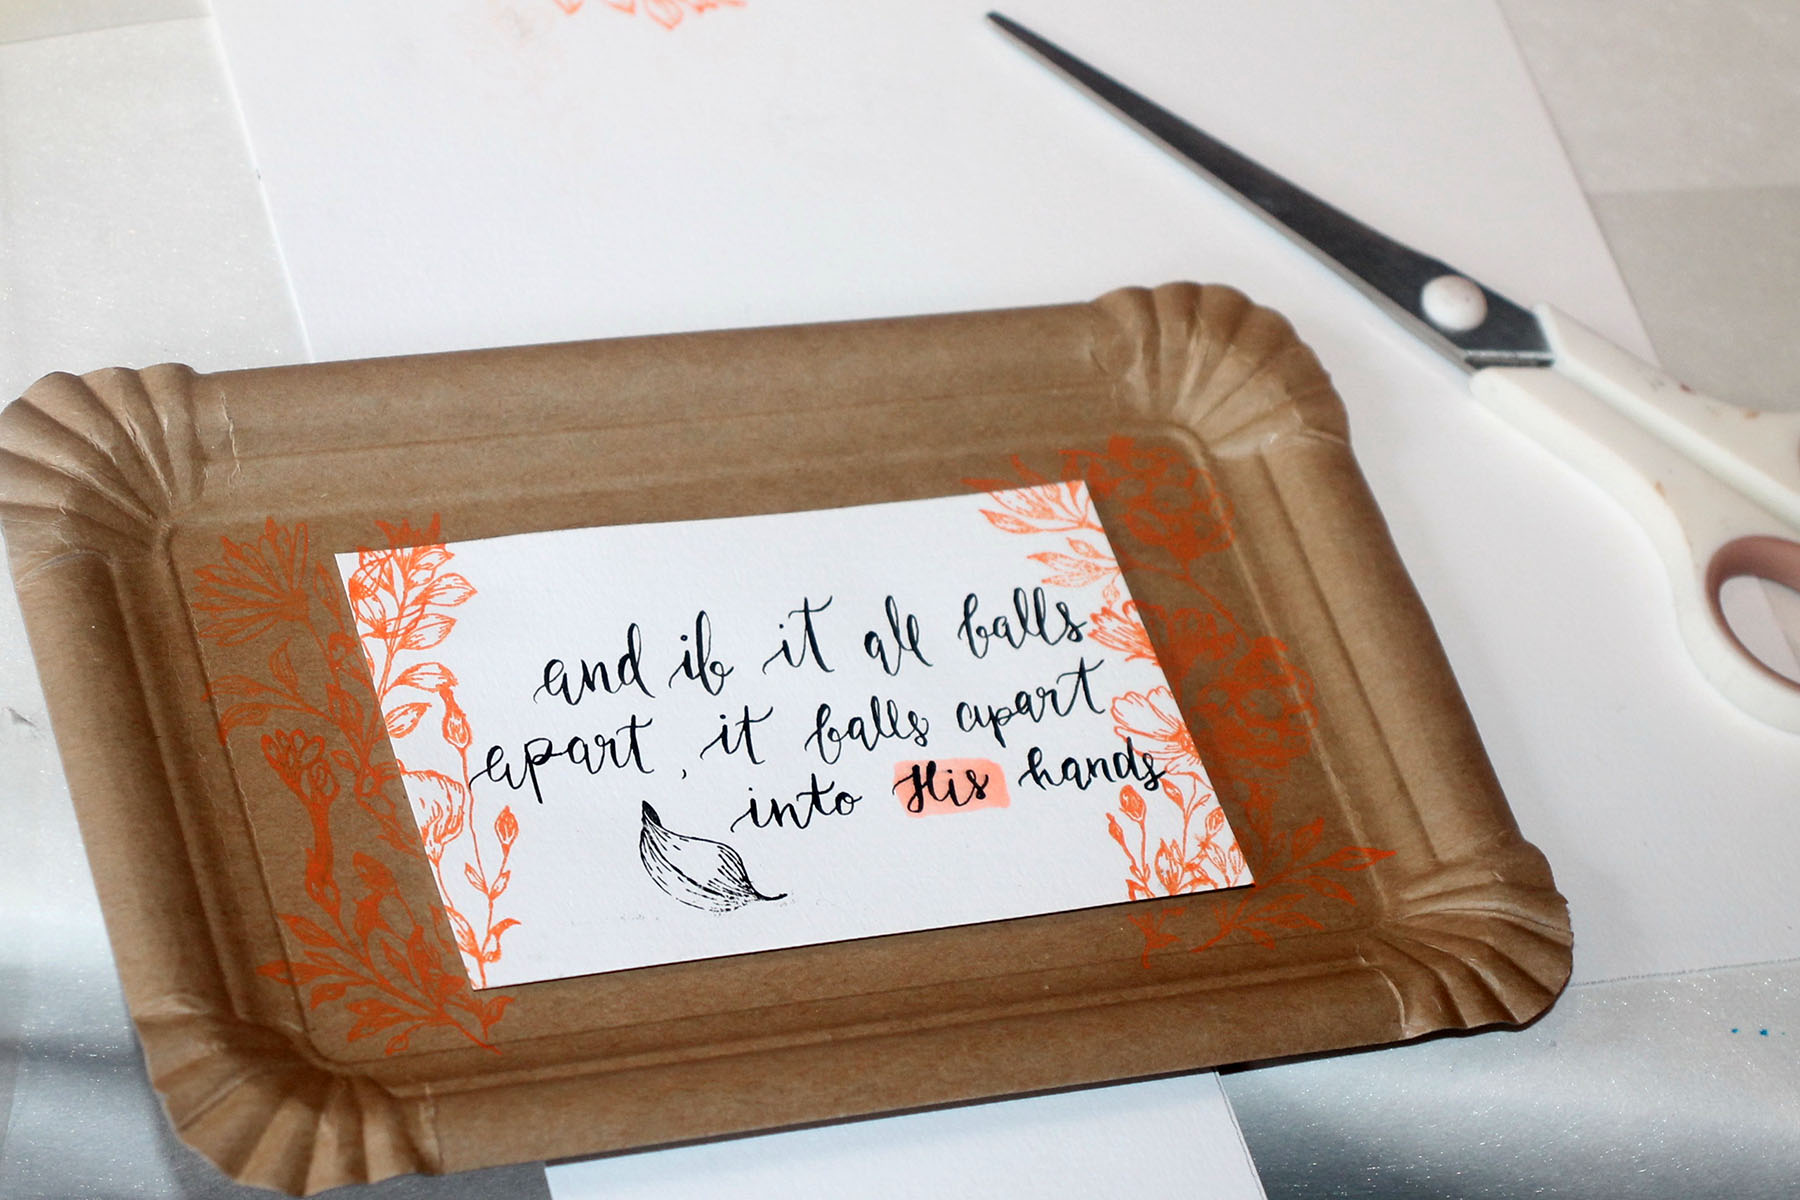 and if it all falls
apart, it falls apart
into His hands